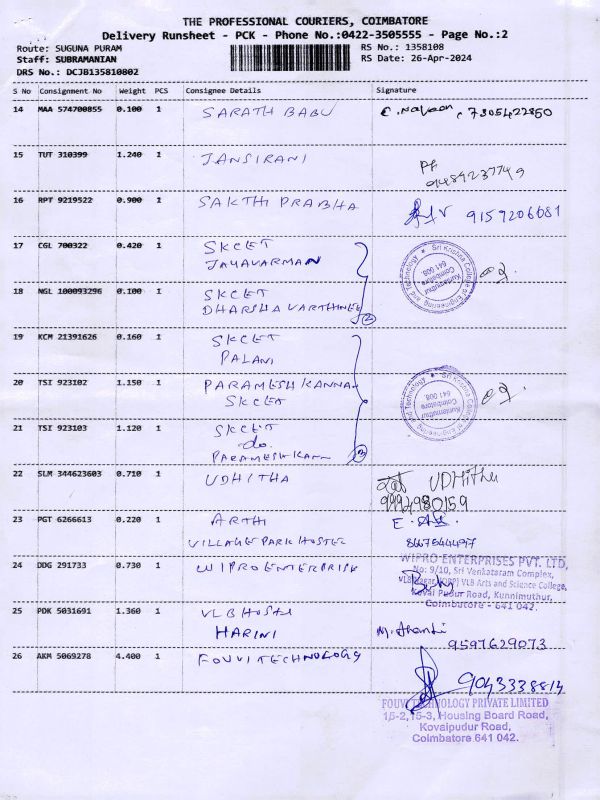 THE PROFESSIONAL COURIERS, COIMBATORE
Delivery Runsheet - PCK - Phone No.:0422-3505555 - Page No.:2
Route: SUGUNA PURAM RS No.: 1358108
Staff: SUBRAMANIAN RS Date: 26-Apr-2024
DRS No.: DCJB135810802
S No Consignment No Weight PCS Consignee Details Signature
14 MAA 574700855 0.100 1 SARATH BABU 7305422850
15 TUT 310399 1.240 1 JANSIRANI
9489237749
16 RPT 9219522 0.900 1 SAKTHI PRABHA 9159206681
17 CGL 700322 0.420 1 SKCET
JAYAVARMAN
Sri Krishna College of Engineering and Technology
Kuniamuthur
Coimbatore
641 008.
18 NGL 100093296 0.100 1 SKCET
2
19 KCM 21391626 0.160 1 SKCET
PALANI
20 TSI 923102 1.150 1 PARAMESH KANNAN
SKCET
Sri Krishna College of Engineering and Technology
Kuniamuthur
Coimbatore
641 008.
21 TSI 923103 1.120 1 SKCET
do.
PARAMESH KANN
3
22 SLM 344623603 0.710 1 UDHITHA UDHitha
9994980159
23 PGT 6266613 0.220 1 ARTHI
VILLAGE PARK HOSTEL
24 DDG 291733 0.730 1 WIPRO ENTERPRISE
WIPRO ENTERPRISES PVT. LTD,
No: 9/10, Sri Venkataram Complex,
VLB Nagar (OPP) VLB Arts and Science College,
Kovai Pudur Road, Kunnimuthur,
Coimbutore - 641 042.
25 PDK 5031691 1.360 1 VLB HOSTEL
HARINI
9597629073
26 AKM 5069278 4.400 1 FOUVI TECHNOLOGY
9043338814
FOUVI TECHNOLOGY PRIVATE LIMITED
15-2, 15-3, Housing Board Road,
Kovaipudur Road,
Coimbatore 641 042.